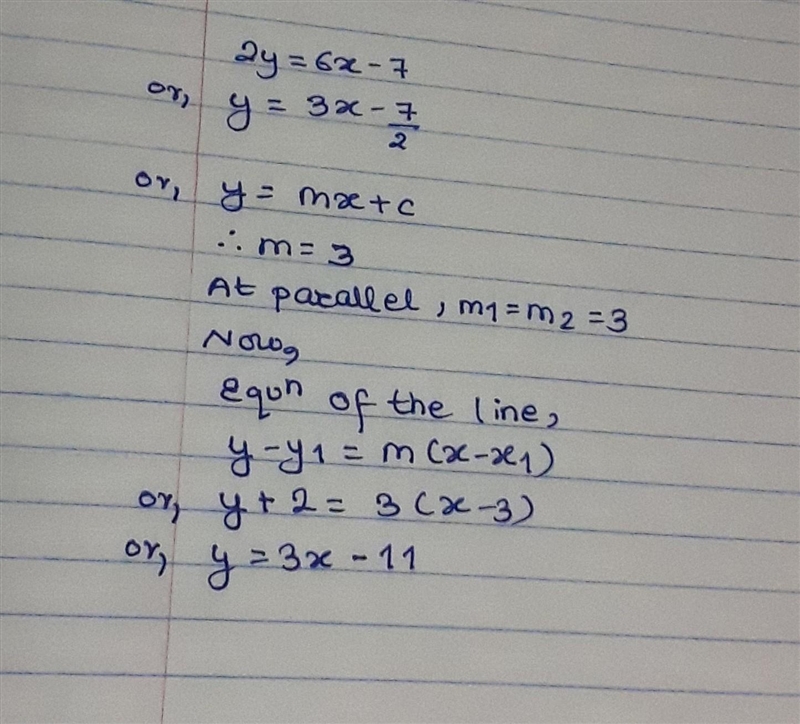 2y = 6x - 7
or, y = 3x - 7/2
or, y = mx + c
∴ m = 3
At parallel, m1 = m2 = 3
Now,
equn of the line,
y - y1 = m (x - x1)
or, y + 2 = 3 (x - 3)
or, y = 3x - 11